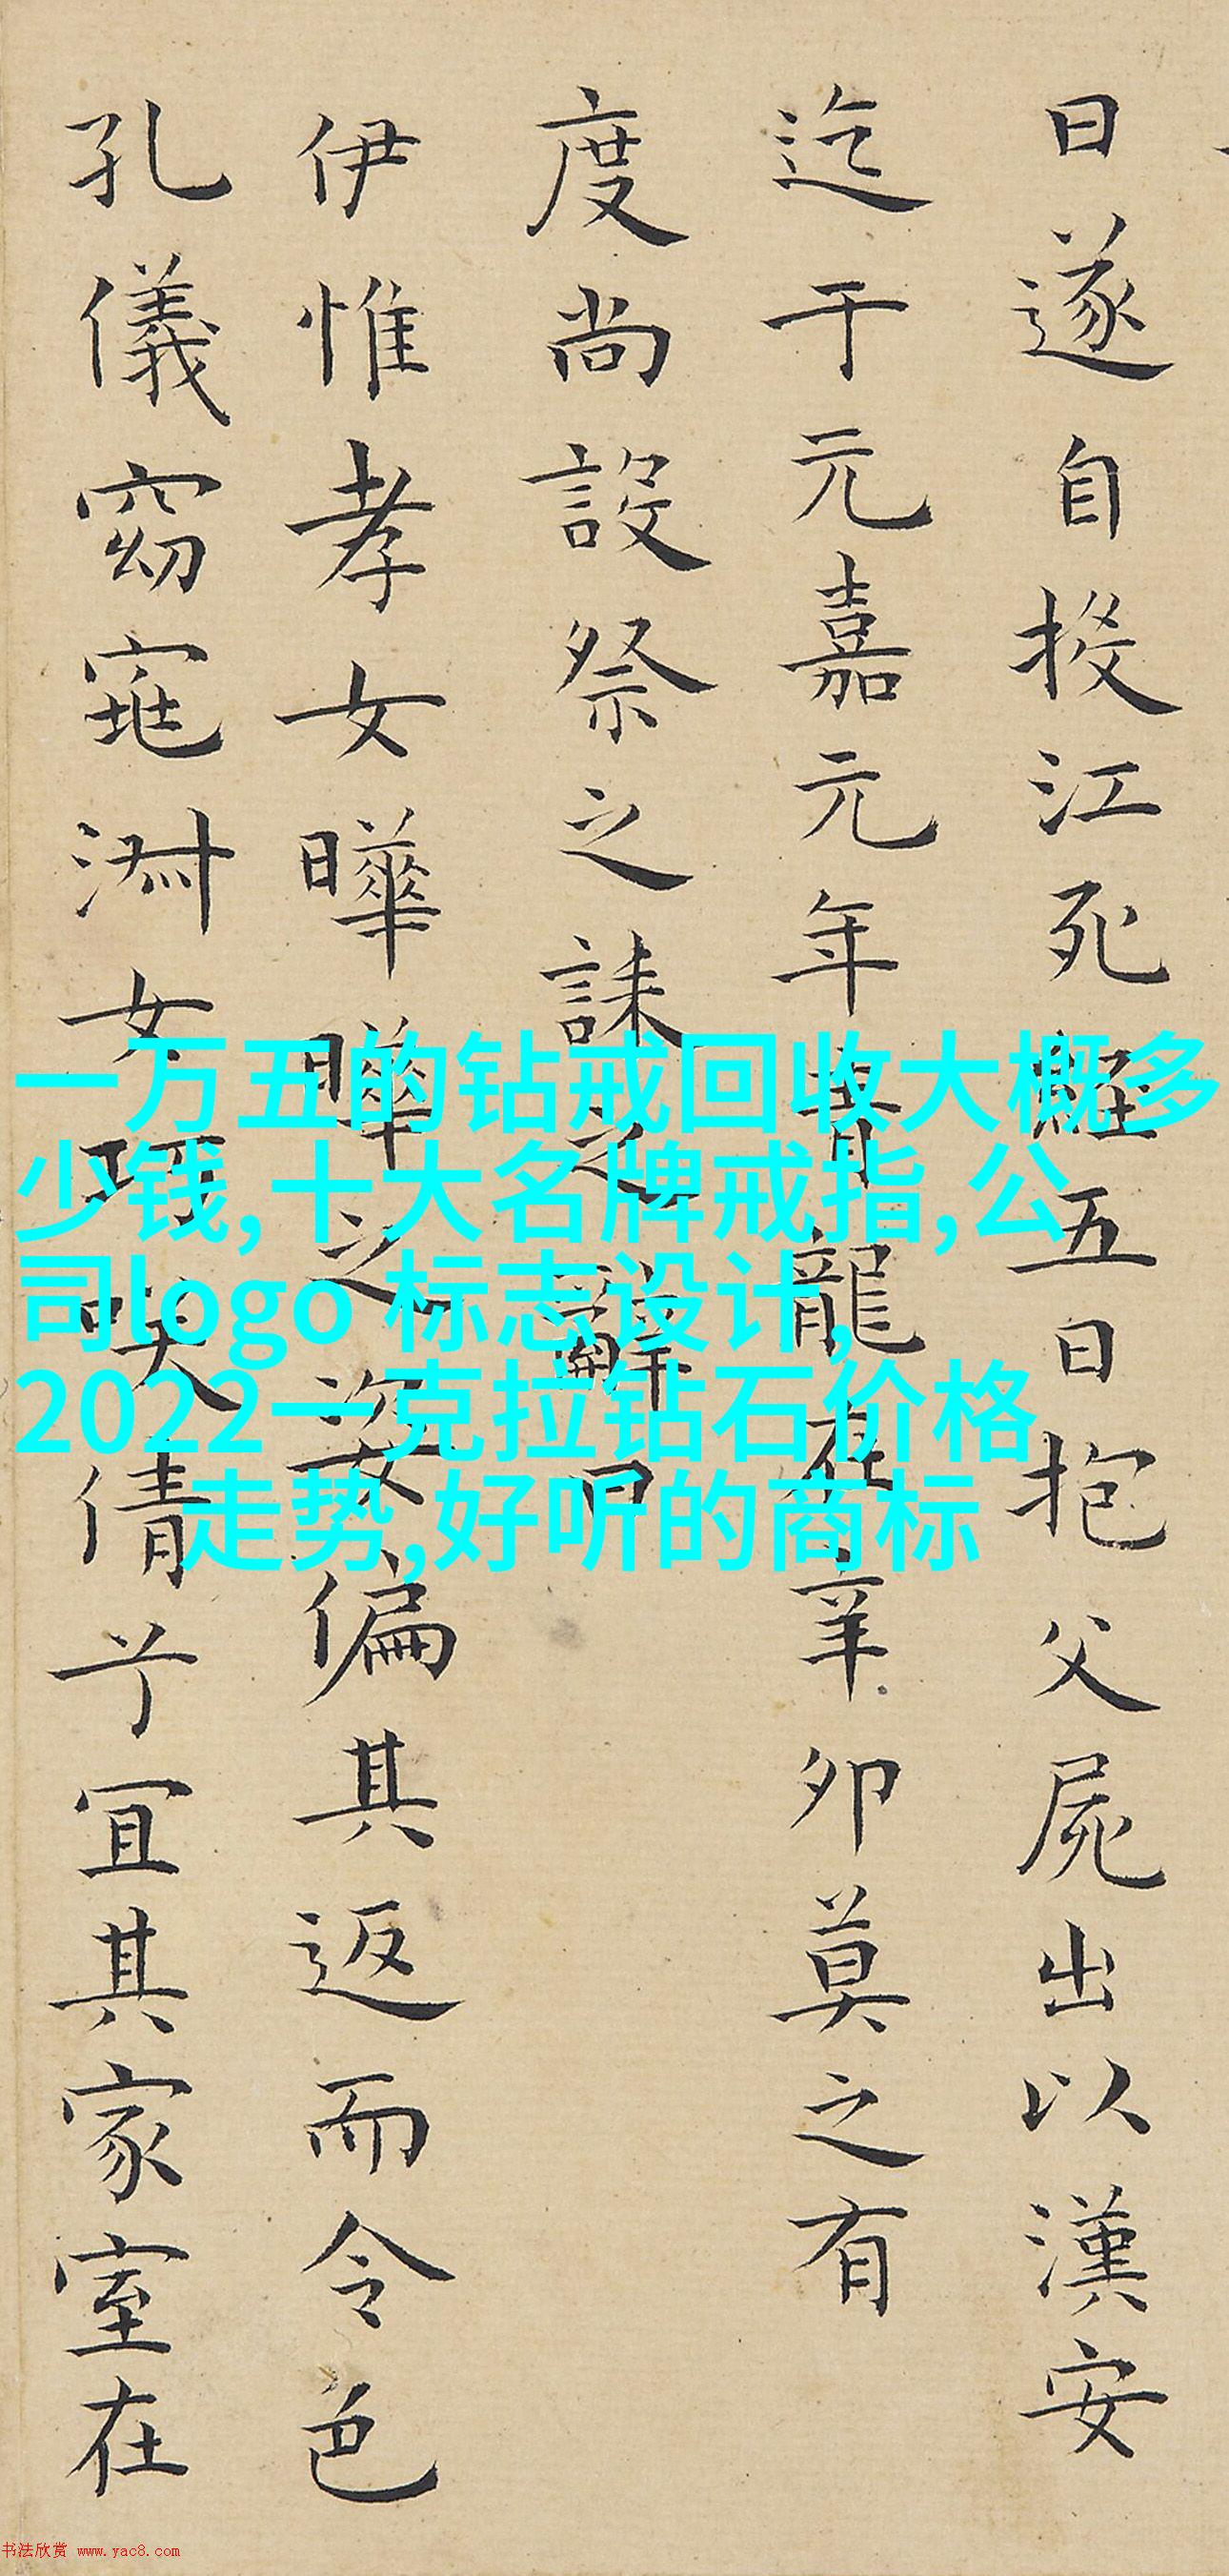 日遂自投江死經五日抱父屍出以漢安
迄于元嘉元年青龍在辛卯莫之有
度尚設祭之誄之辭曰
伊惟孝女曄曄之姿偏其返而令色
孔儀窈窕淑女巧咲倩兮宜其家室在
一万五的钻戒回收大概多
少钱,十大名牌戒指,公
司logo 标志设计,
2022一克拉钻石价格
走势,好听的商标
书法欣赏 www.yac8.com